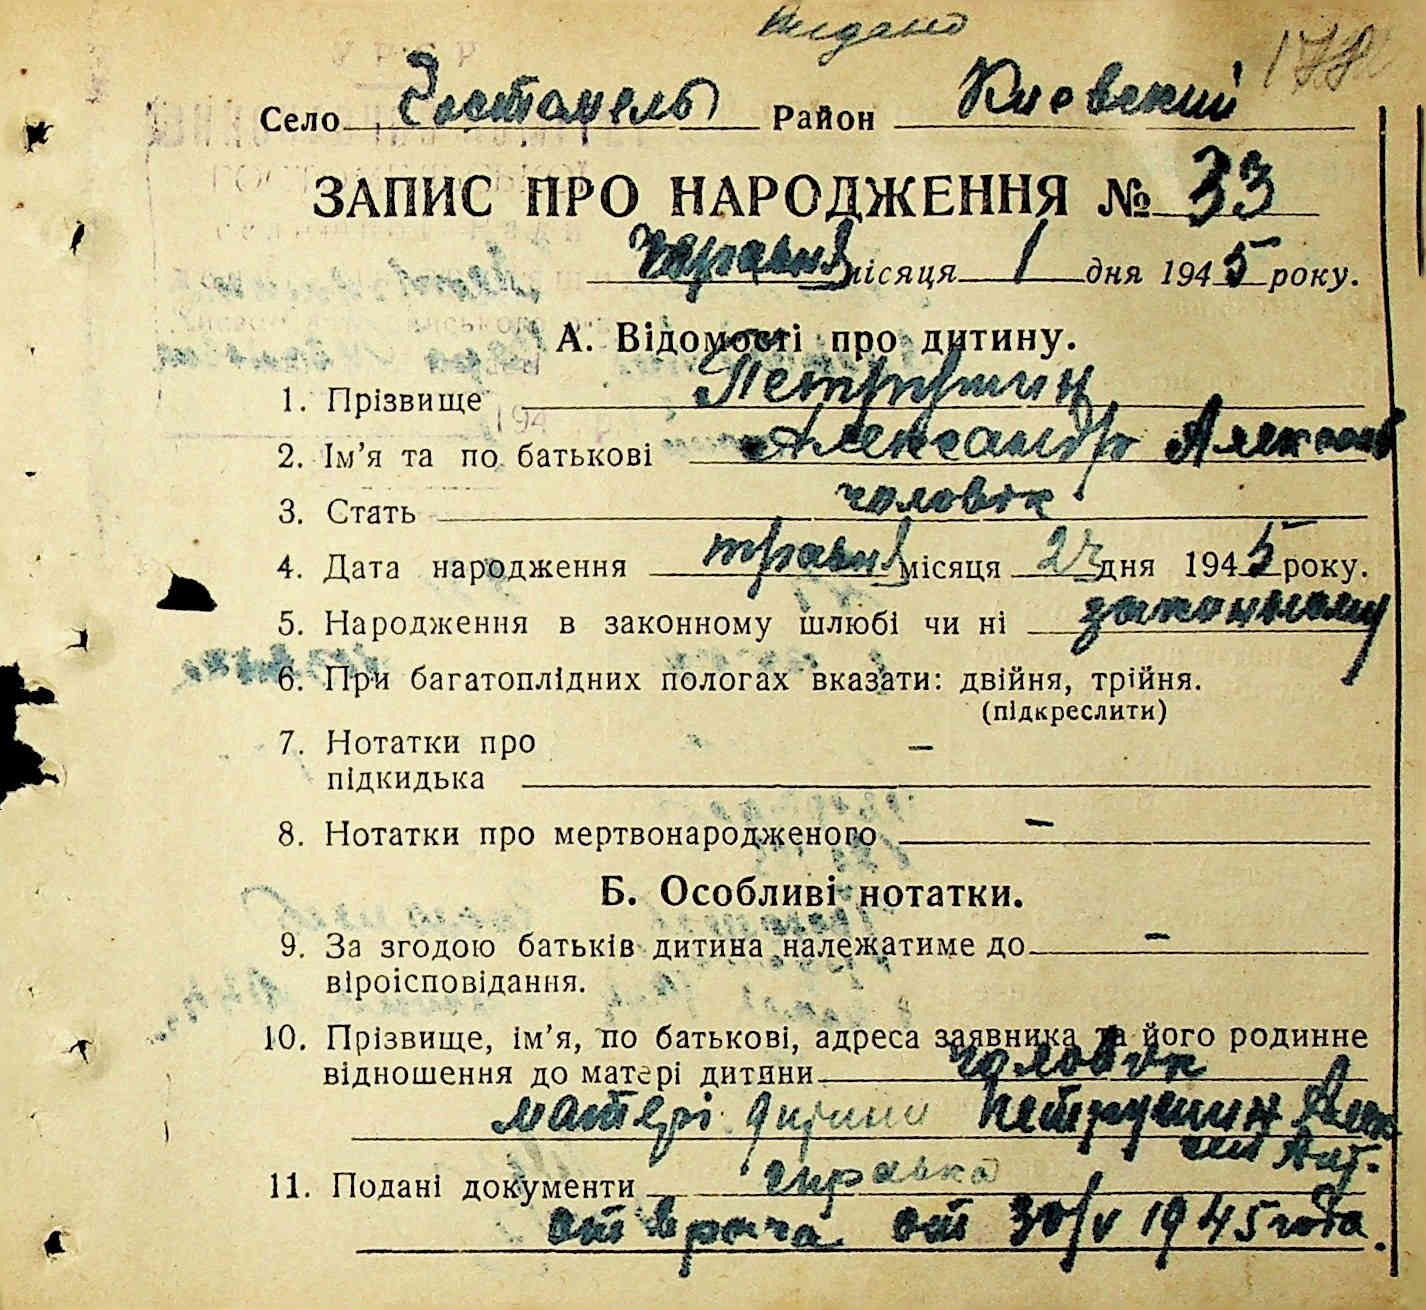 видано
178
Село Гостомель Район Киевский
ЗАПИС ПРО НАРОДЖЕННЯ № 33
червня місяця 1 дня 1945 року.
А. Відомості про дитину.
1. Прізвище Петрушин
2. Ім'я та по батькові Александр Алексеев
3. Стать чоловік
4. Дата народження травня місяця 27 дня 1945 року.
5. Народження в законному шлюбі чи ні законному
6. При багатоплідних пологах вказати: двійня, трійня.
(підкреслити)
7. Нотатки про –
підкидька
8. Нотатки про мертвонародженого –
Б. Особливі нотатки.
9. За згодою батьків дитина належатиме до –
віроісповідання.
10. Прізвище, ім'я, по батькові, адреса заявника та його родинне
відношення до матері дитини чоловік
матері дитини Петрушин Алек
сей
11. Подані документи справка
от врача от 30/V 1945 года.